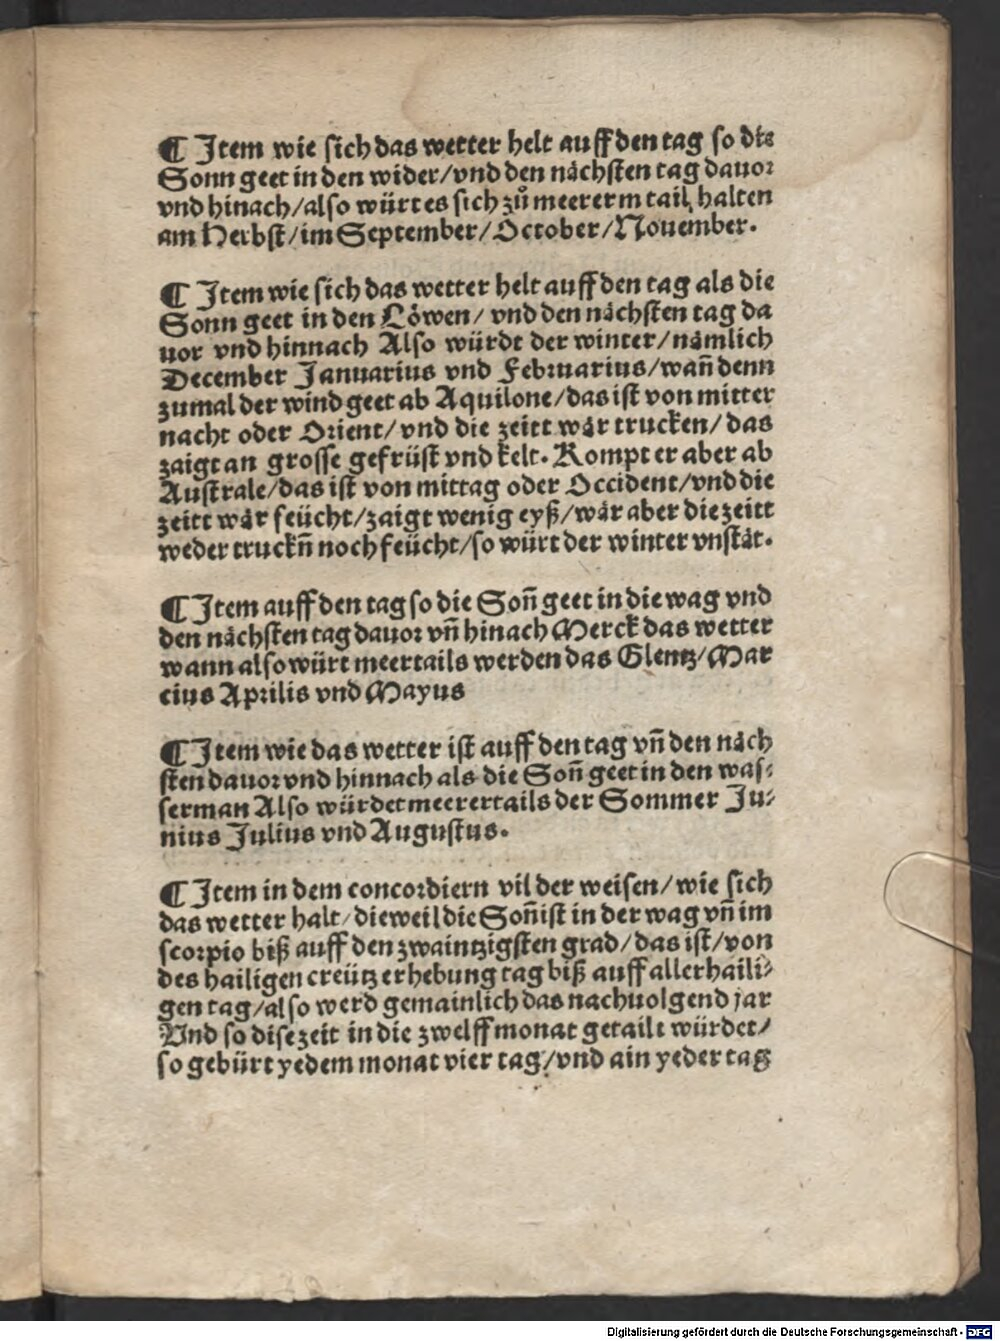 ¶ Item wie sich das wetter helt auff den tag so die
Sonn geet in den wider/vnd den nächsten tag dauor
vnd hinach/also würt es sich zů meererm tail halten
am Herbst/im September/October/Nouember.
¶ Item wie sich das wetter helt auff den tag als die
Sonn geet in den Löwen/ vnd den nächsten tag da
uor vnd hinnach Also würdt der winter/nämlich
December Januarius vnd Februarius/wañ denn
zumal der wind geet ab Aquilone/das ist von mitter
nacht oder Orient/vnd die zeitt wär trucken/das
zaigt an grosse gefrüst vnd kelt. Kompt er aber ab
Australe/das ist von mittag oder Occident/vnd die
zeitt wär feücht/zaigt wenig eyß/wär aber die zeitt
weder truckñ noch feücht/so würt der winter vnstät.
¶ Item auff den tag so die Soñ geet in die wag vnd
den nächsten tag dauor vñ hinach Merck das wetter
wann also würt meertails werden das Glentz/Mar
cius Aprilis vnd Mayus
¶ Item wie das wetter ist auff den tag vñ den näch
sten dauor vnd hinnach als die Soñ geet in den was⸗
serman Also würdet meerertails der Sommer Ju⸗
nius Julius vnd Augustus.
¶ Item in dem concordiern vil der weisen/wie sich
das wetter halt/dieweil die Soñ ist in der wag vñ im
scorpio biß auff den zwaintzigsten grad/das ist/von
des hailigen creütz erhebung tag biß auff allerhaili⸗
gen tag/also werd gemainlich das nachuolgend jar
Vnd so dise zeit in die zwelff monat getailt würdet/
so gebürt yedem monat vier tag/vnd ain yeder tag
Digitalisierung gefördert durch die Deutsche Forschungsgemeinschaft - DFG